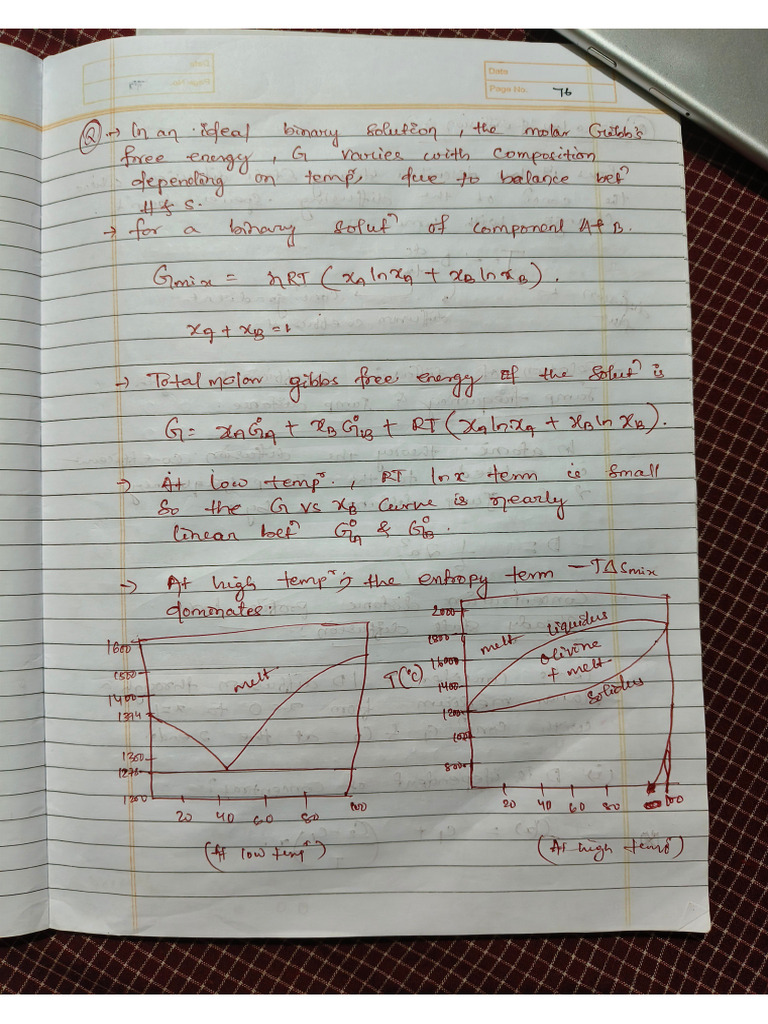 Date
Page No. 76
Q → In an ideal binary solution, the molar Gibb's
free energy, G varies with composition
depending on tempr, due to balance betn
H & S.
→ for a binary solutn of component A & B.
Gmix = nRT (xA ln xA + xB ln xB).
xA + xB = 1
→ Total molar gibbs free energy of the solutn is
G = xAG°A + xBG°B + RT (xA ln xA + xB ln xB).
→ At low tempr., RT ln x term is small
So the G vs xB curve is nearly
linear betn G°A & G°B.
→ At high tempr, the entropy term −TΔSmix
dominates:
1600
1500
1400
1394
1300
1270
1200
melt
20 40 60 80 100
(At low tempr)
2000
1800
16000
1400
1200
1000
8000
T(°C)
melt
liquidus
Olivine
+ melt
Solidus
20 40 60 80 100
(At high tempr)